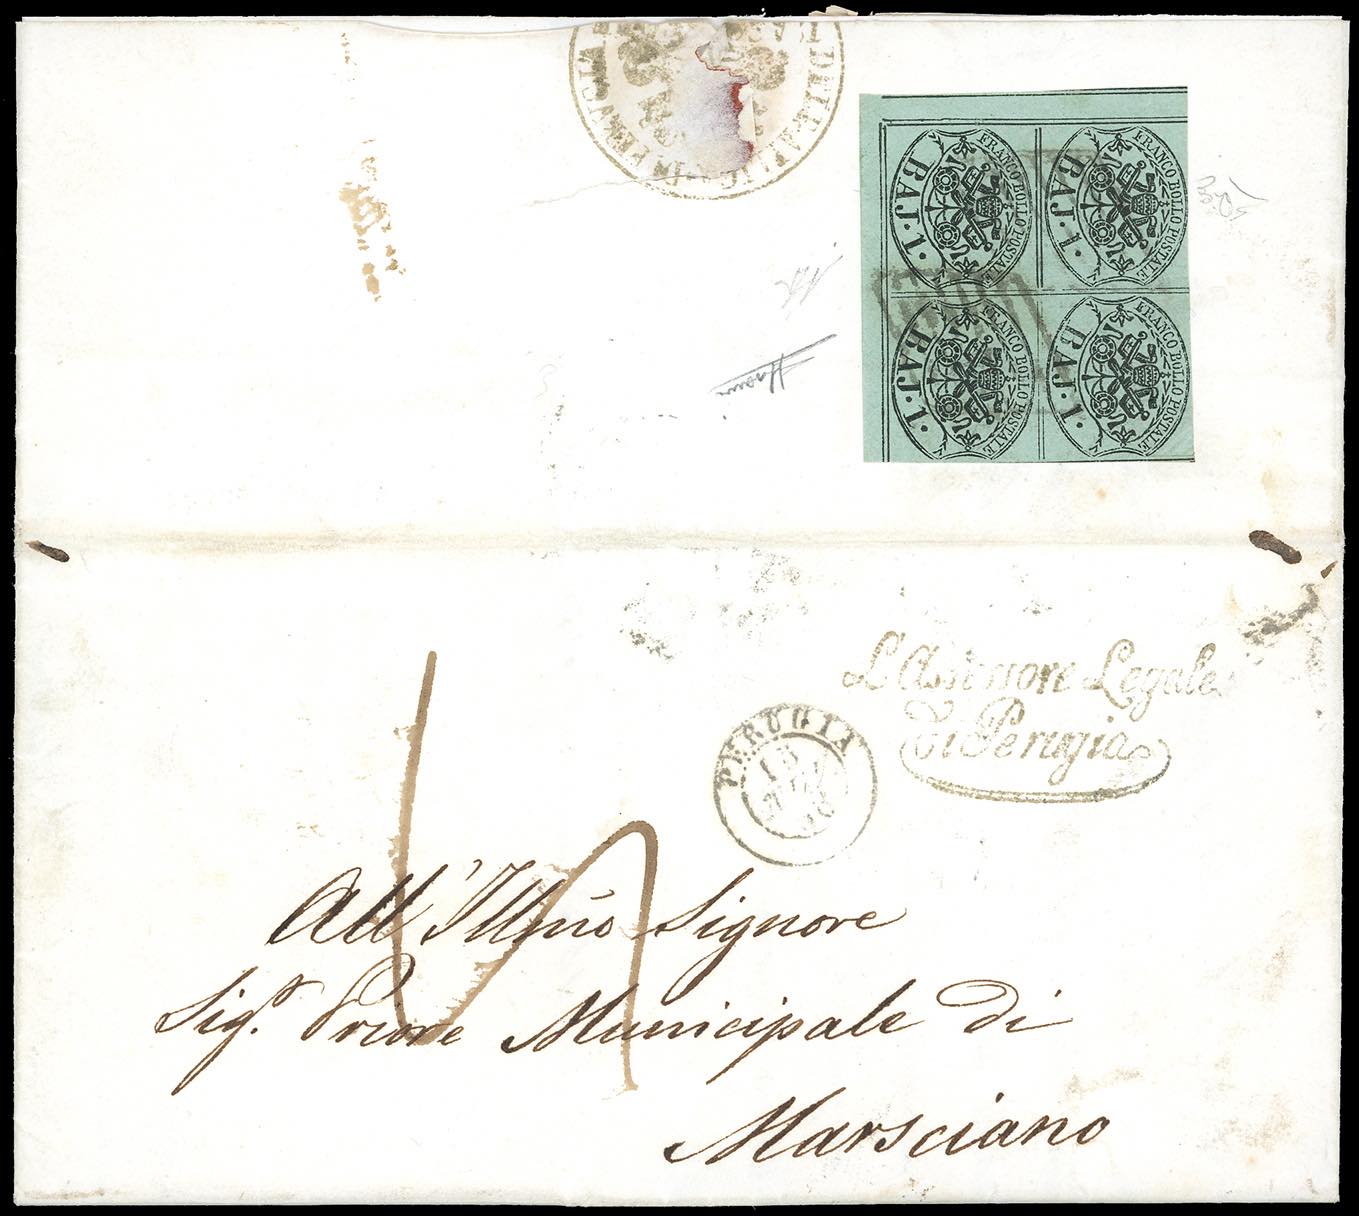 FRANCO BOLLO POSTALE
BAJ. 1.
FRANCO BOLLO POSTALE
BAJ. 1.
FRANCO BOLLO POSTALE
BAJ. 1.
FRANCO BOLLO POSTALE
BAJ. 1.
L'Assessore Legale
di Perugia
PERUGIA
13
All' Illmo Signore
Sigr. Priore Municipale di
Marsciano